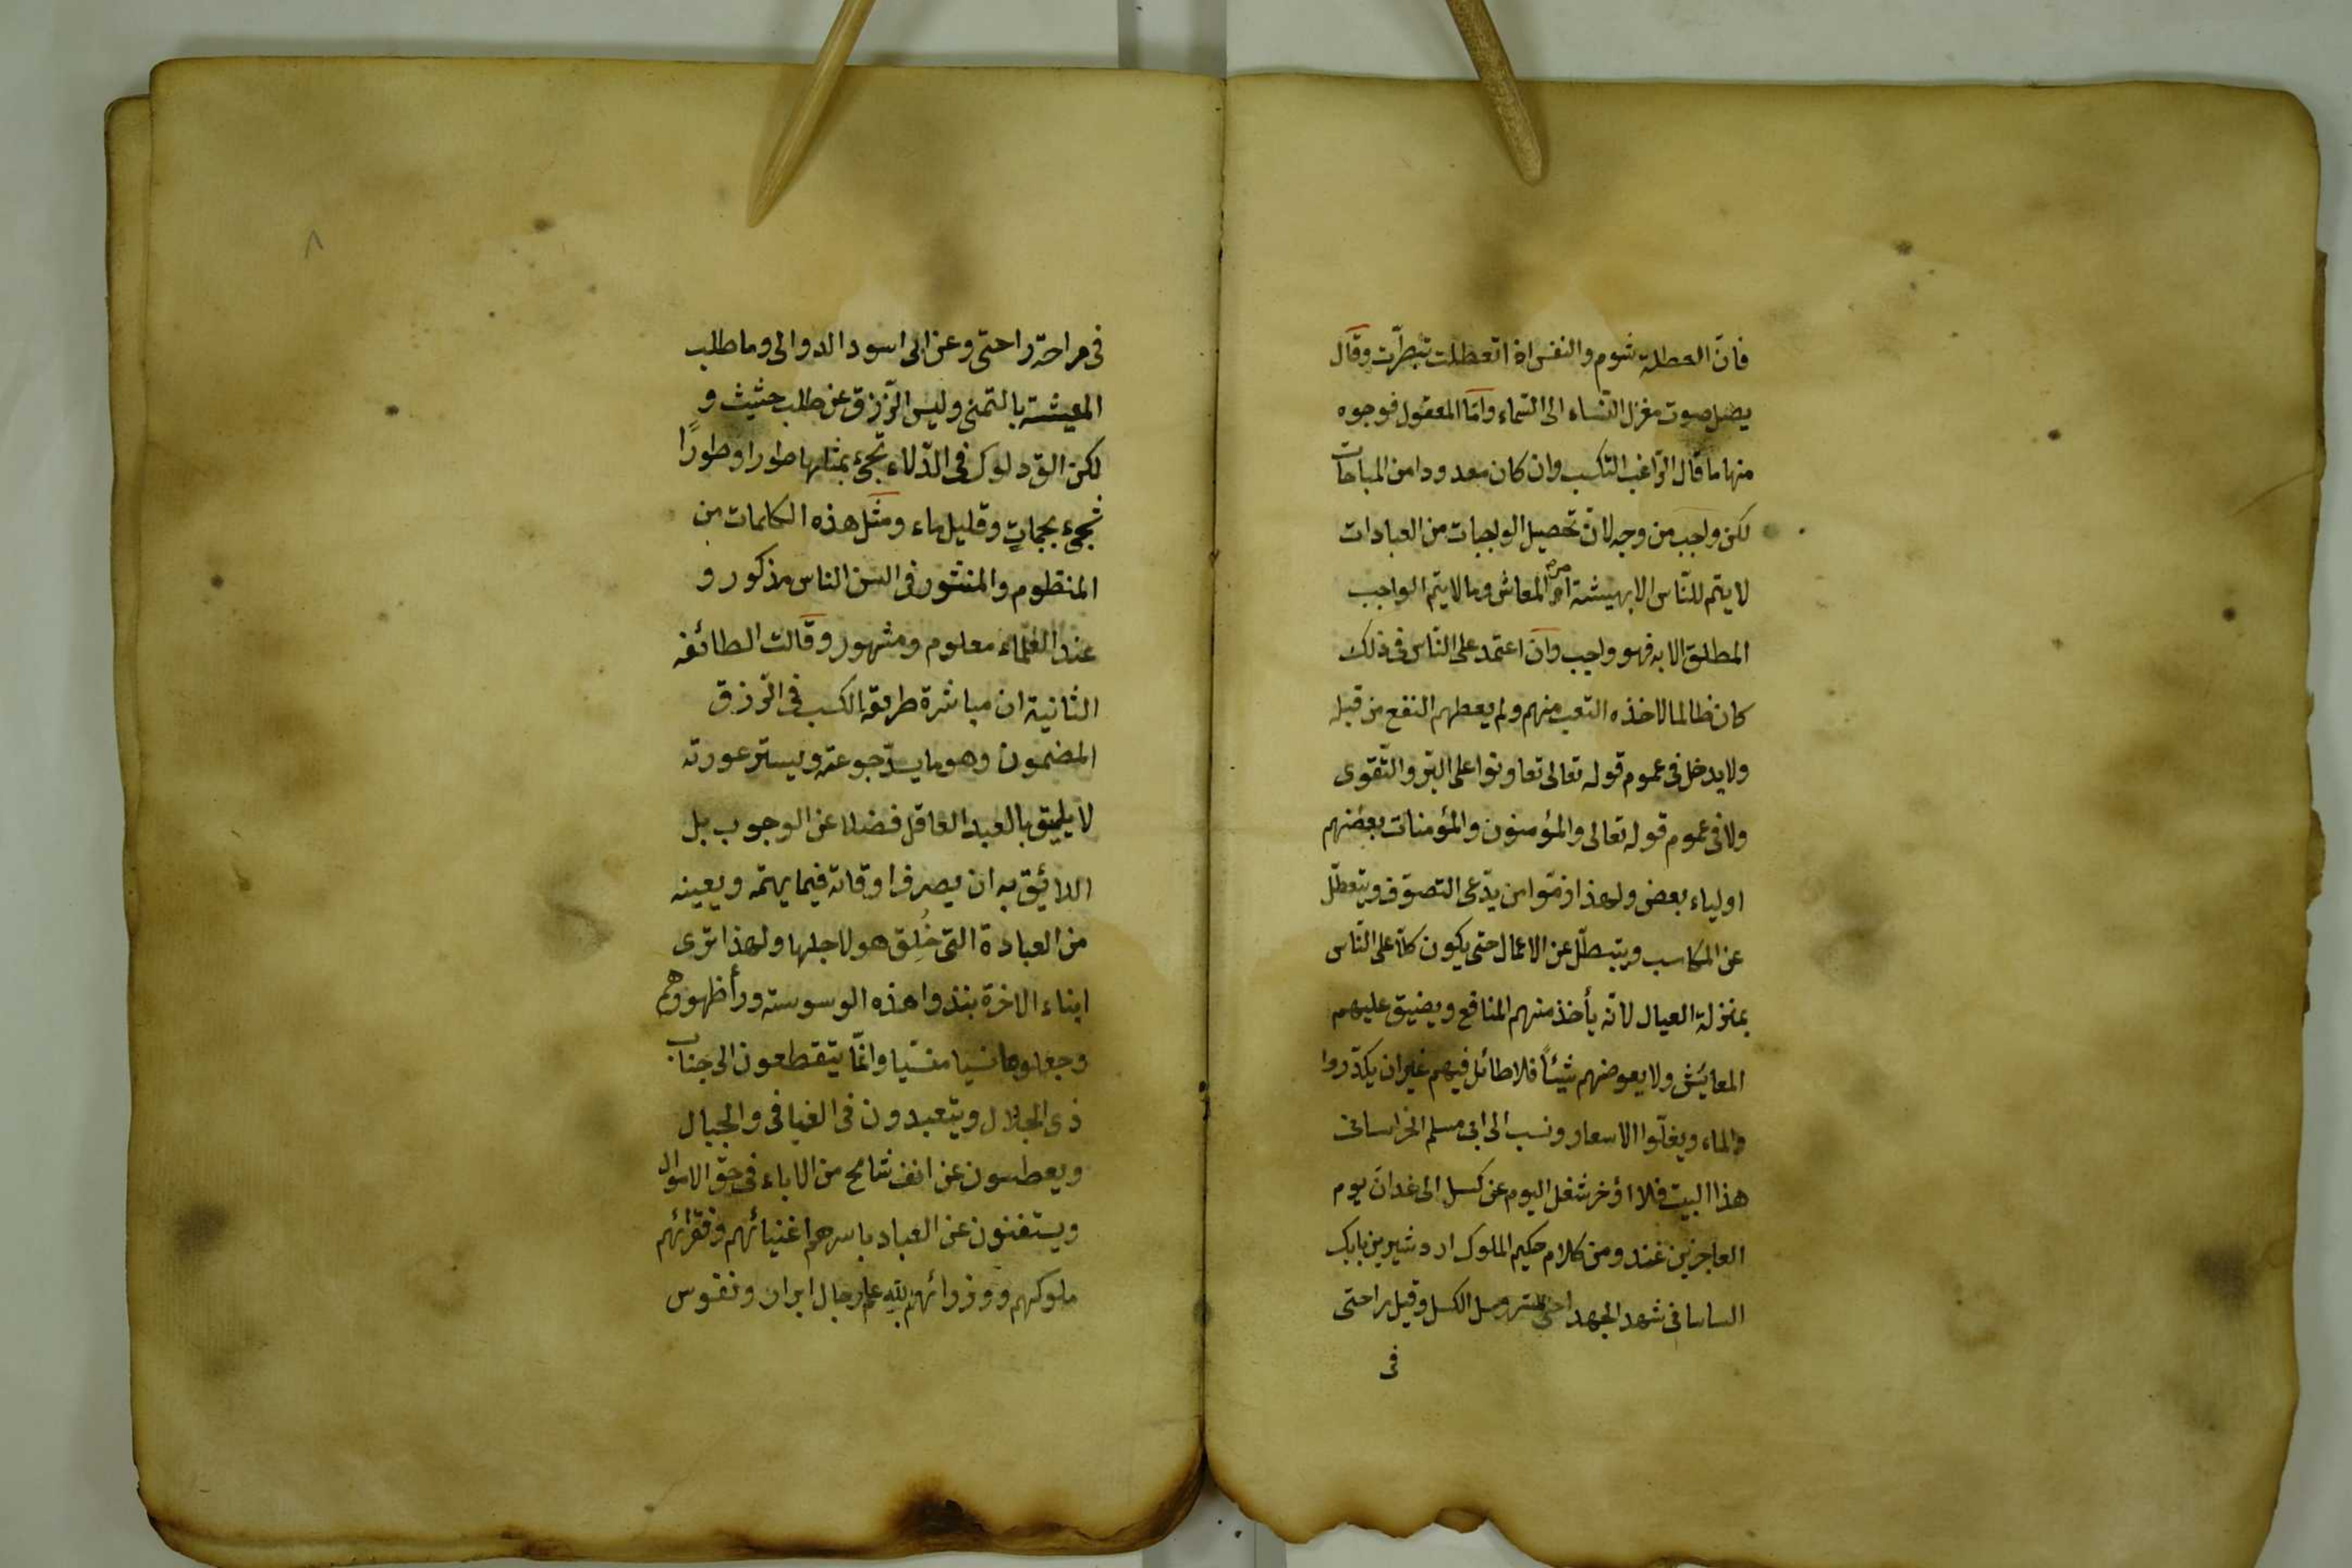 فانّ العطلة شوم والنفس اذا تعطلت تبطرّت وقال
يصل صوت مغزل النّساء الى السّماء وامّا المعقول فوجوه
منها ما قال الرّاغب التكسب وان كان معدودا من المباحات
لكن واجب من وجه لانّ تحصيل الواجبات من العبادات
لا يتم للنّاس الا بهيشة امر المعاش وما لا يتم الواجب
المطلق الا به فهو واجب وان اعتمد على النّاس فى ذلك
كان ظالما لاخذه التعب منهم ولم يعطهم النفع من قبله
ولا يدخل فى عموم قوله تعالى تعاونوا على البّر والتّقوى
ولا فى عموم قوله تعالى والمؤمنون والمؤمنات بعضهم
اولياء بعض ولهذا ذمّوا من يدّعى التصوّف ويتعطّل
عن المكاسب ويتبطّل عن الاعمال حتى يكون كلّا على النّاس
بمنزلة العيال لانّه يأخذ منهم المنافع ويضيق عليهم
المعايش ولا يعوضهم شيئاً فلا طائل فيهم غير ان يكدّروا
والماء ويغلّوا الاسعار ونسب الى ابى مسلم الخراسانى
هذا البيت فلا اؤخر شغل اليوم عن كسل الى غد ان يوم
العاجزين غد ومن كلام حكيم الملوك اردشير بن بابك
الساسانى شهد الجهد احلى من عسل الكسل وقيل راحتى
فى
٨
فى جراحة راحتى وعن ابى اسود الدوالى وما طلب
المعيشة بالتمنى وليس الرّزق عن طلب حثيث و
لكن الق دلوك فى الدّلاء تجىء بمثلها طورا وطورًا
تجىء بجماتٍ وقليل ماء ومثل هذه الكلمات من
المنظوم والمنثور فى السن الناس مذكور و
عند العلماء معلوم ومشهور وقالت الطائفة
الثانية ان مباشرة طريقة الكسب فى الرّزق
المضمون وهو ما يسدّ جوعته ويستر عورته
لا يليق بالعبد العاقل فضلا عن الوجوب بل
اللائق به ان يصرف اوقاته فيما يهمّه ويعينه
من العبادة التى خُلِق هو لاجلها ولهذا ترى
ابناء الاخرة نبذوا هذه الوسوسة وراء ظهورهم
وجعلوها نسيا منسّيا وانمّا يتقطعون الى جناب
ذى الجلال ويتعبدون فى الفيافى والجبال
ويعطسون عن انف شامخ من الاباء فى حق الاموال
ويستغنون عن العباد باسرهم اغنيائهم وفقرائهم
ملوكهم ووزرائهم لله هم رجال ابرار ونفوس